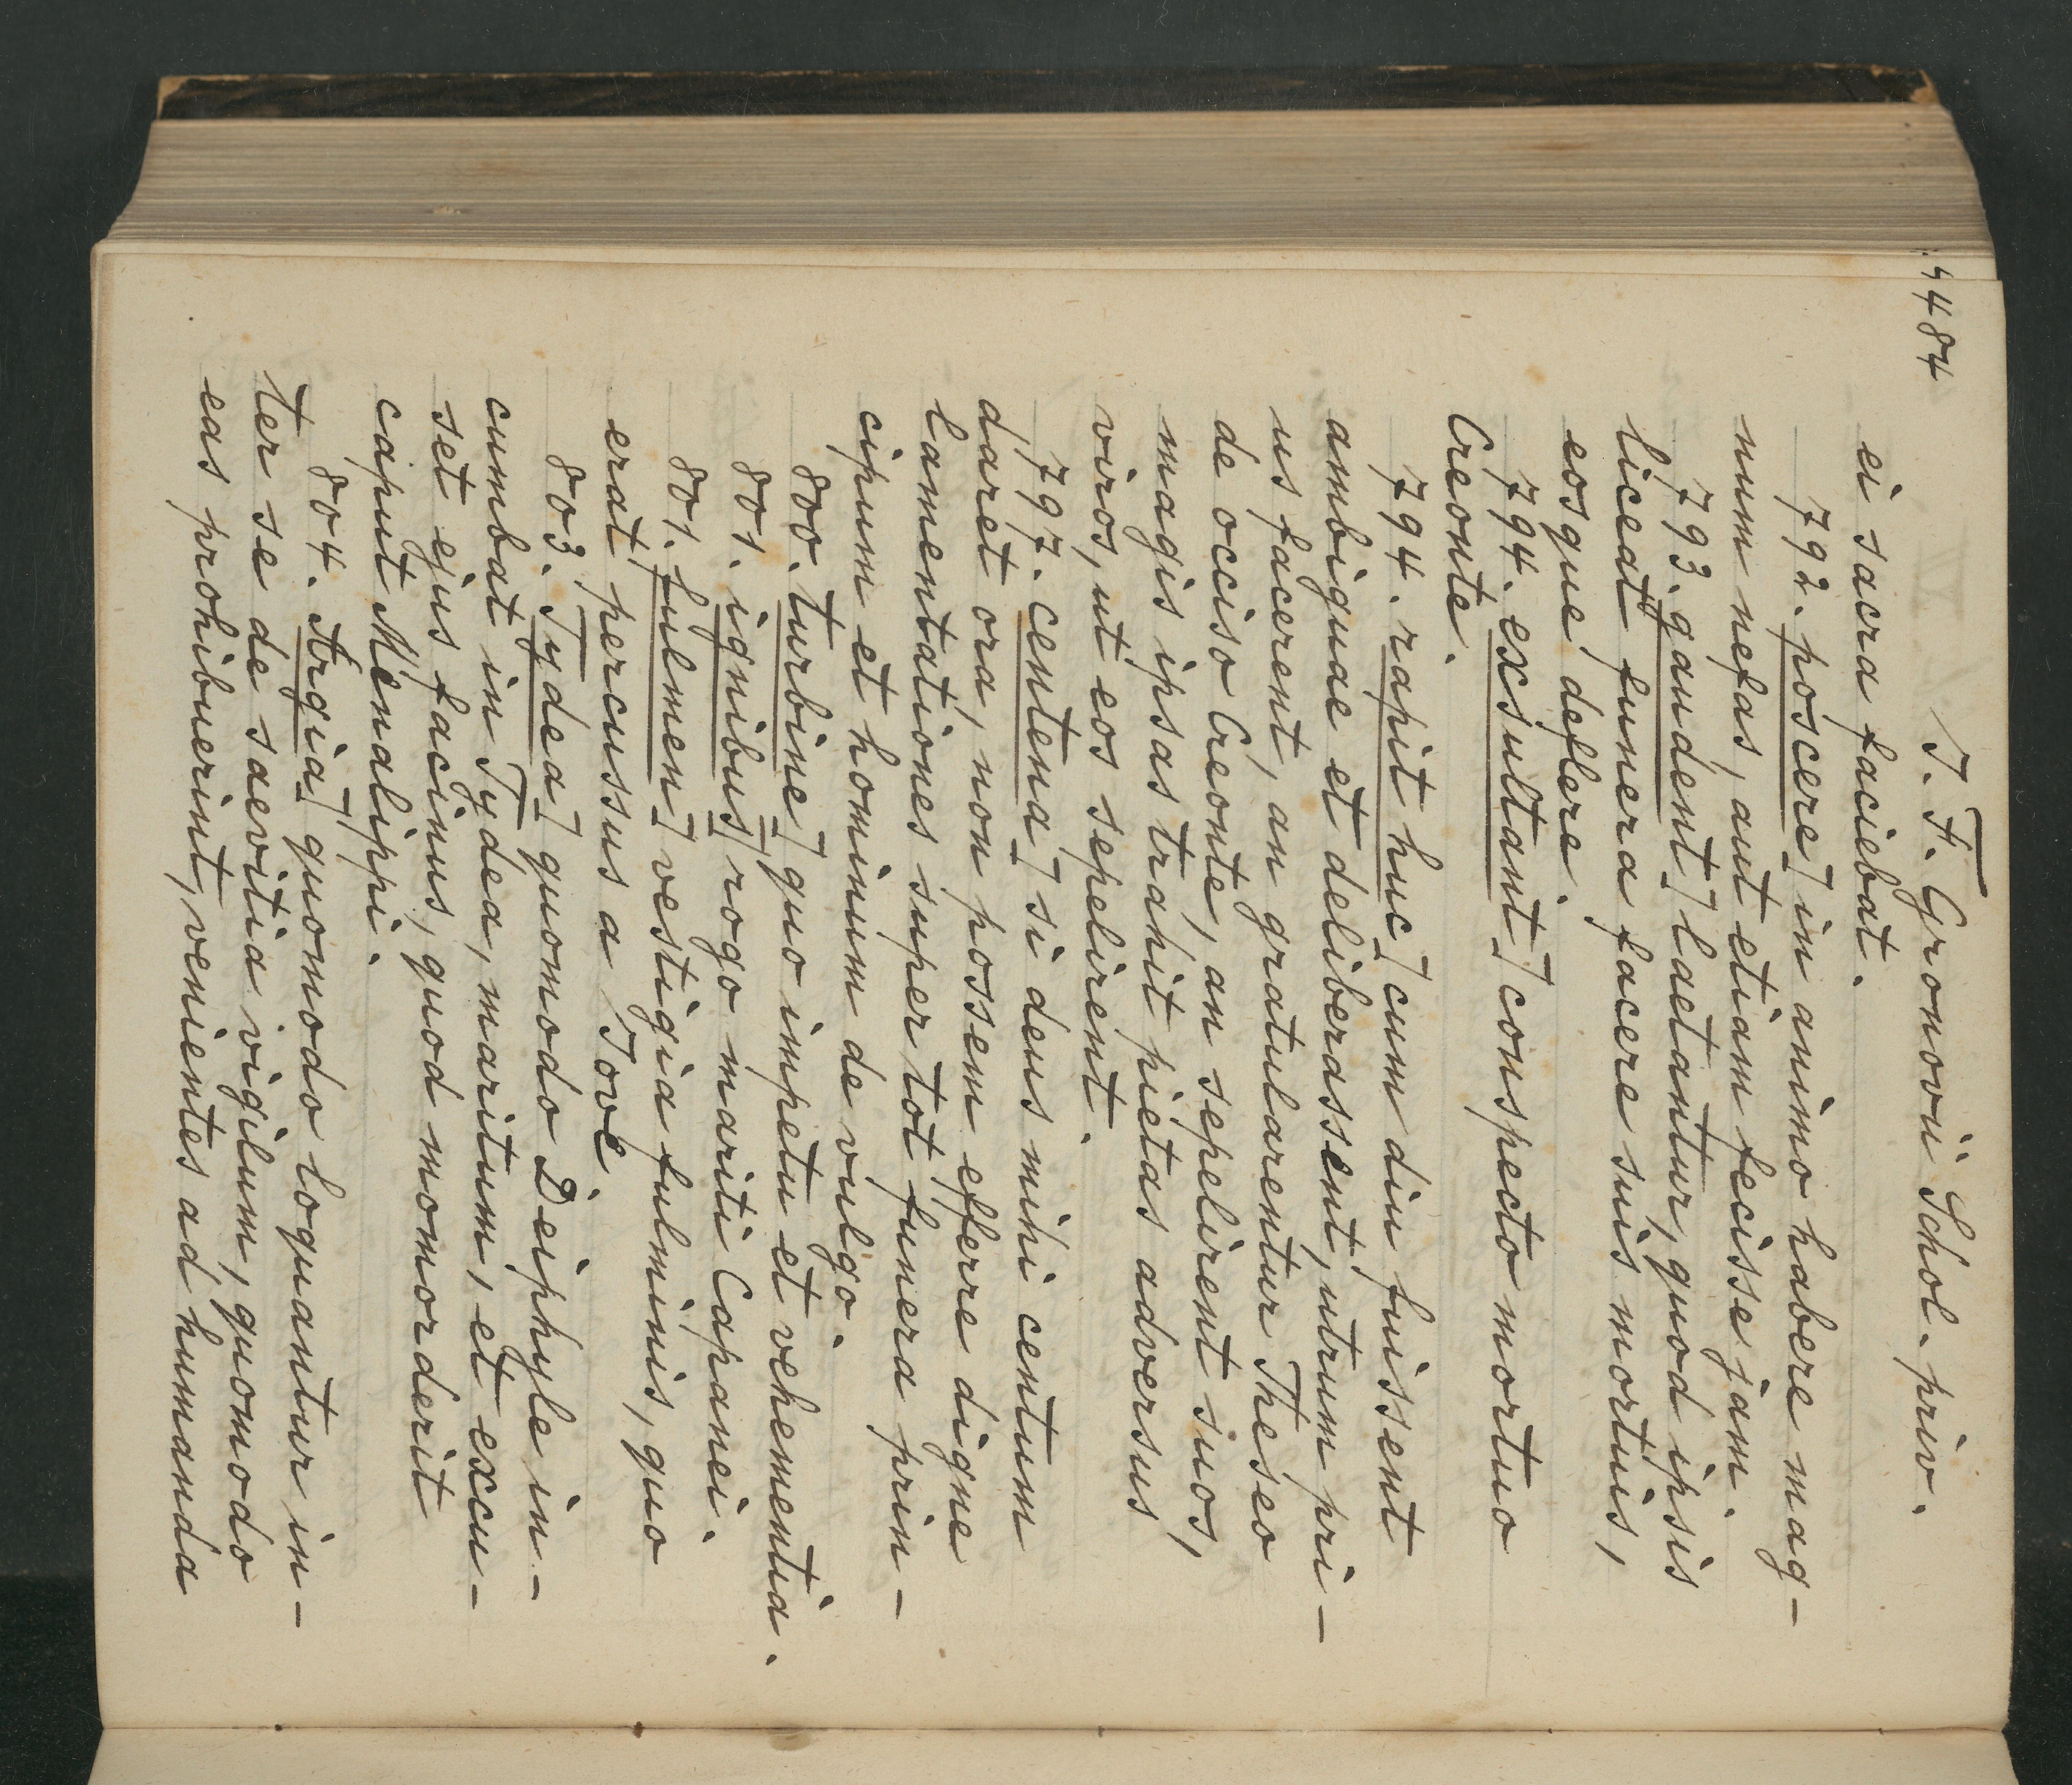 4484
J. F. Gronovii Schol. priv.
ei sacra faciebat.
792. poscere] in animo habere mag-
num nefas, aut etiam fecisse jam.
793. gaudent] laetantur, quod ipsis
liceat funera facere suis mortuis,
eosque deflere.
794. exsultant] conspecto mortuo
Creonte.
794. rapit huc] cum diu fuissent
ambiguae et deliberassent, utrum pri-
us facerent, an gratularentur Theseo
de occiso Creonte, an sepelirent suos,
magis ipsas trahit pietas adversus
viros, ut eos sepelirent.
797. centena] si deus mihi centum
daret ora, non possem efferre digne
lamentationes super tot funera prin-
cipum et hominum de vulgo.
800. turbine] quo impetu et vehementia.
801. ignibus] rogo mariti Capanei.
801. fulmen] vestigia fulminis, quo
erat percussus a Jove.
803. Tydea] quomodo Deiphyle in-
cumbat in Tydea, maritum, et excu-
set ejus facinus, quod momorderit
caput Menalippi.
804. Argia] quomodo loquantur in-
ter se de saevitia vigilum, quomodo
eas prohibuerint, venientes ad humanda